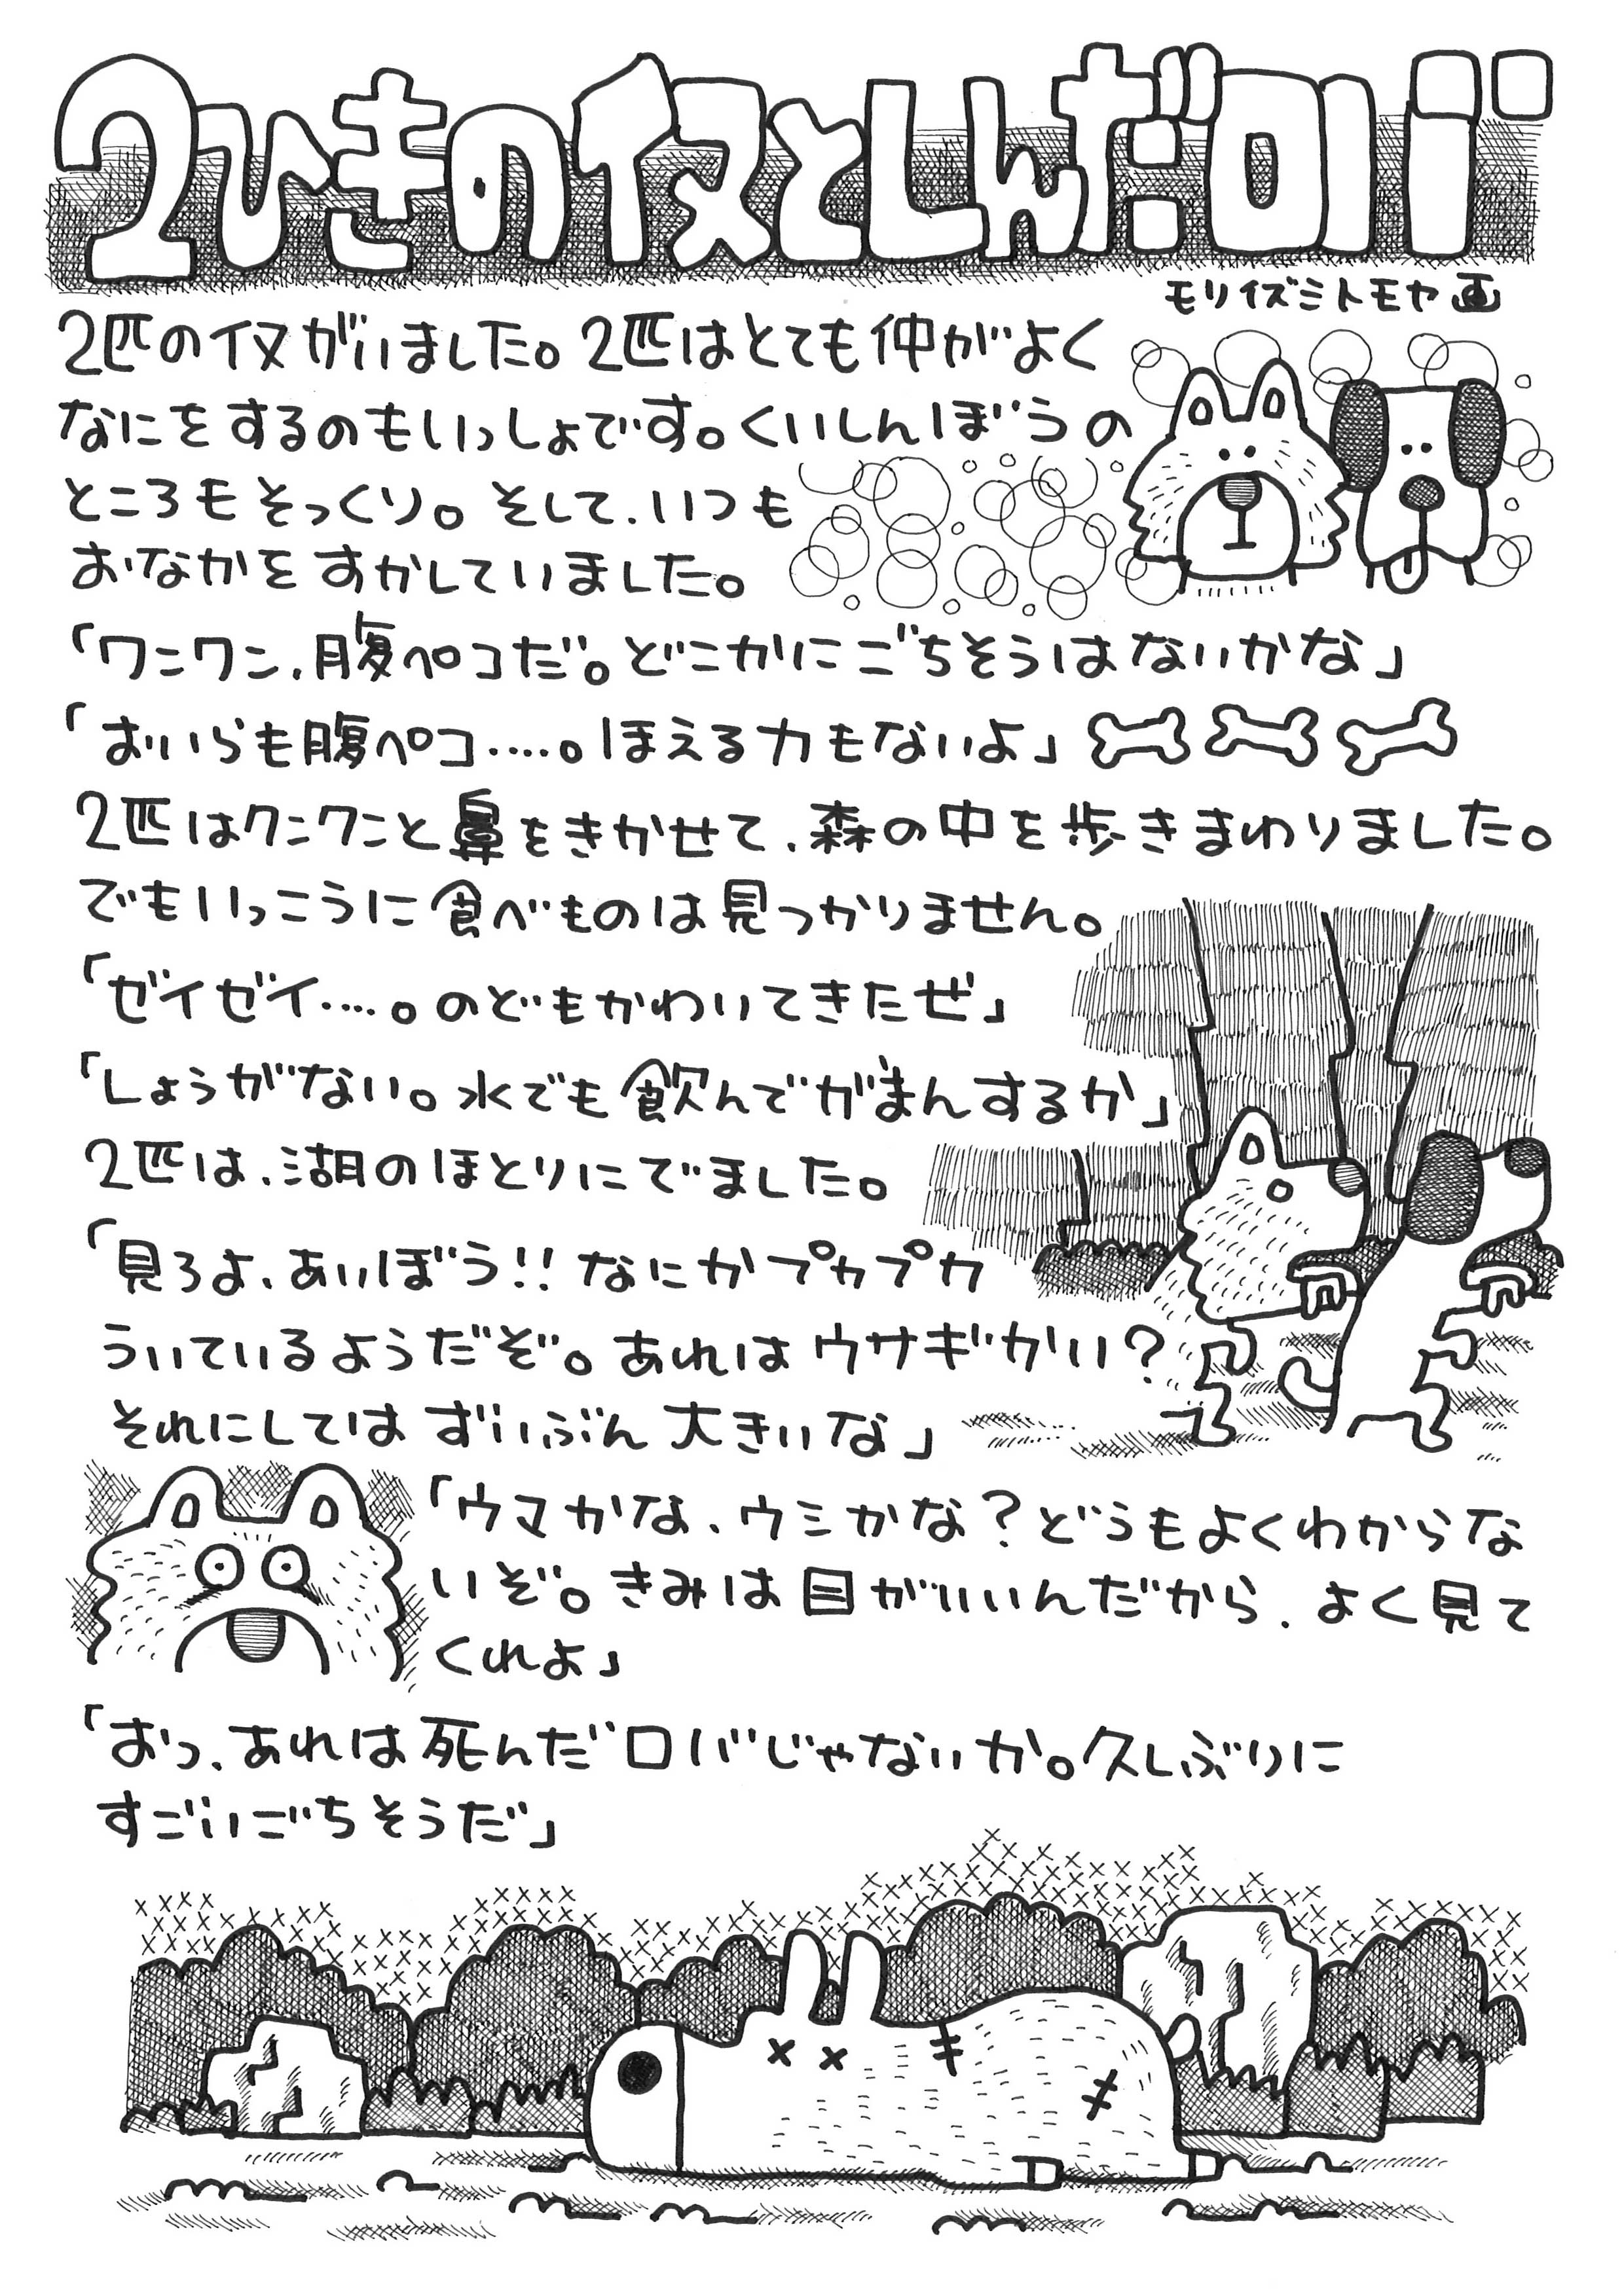 2ひきのイヌとしんだロバ
モリイズミトモヤ画
2匹のイヌがいました。2匹はとても仲がよく
なにをするのもいっしょです。くいしんぼうの
ところもそっくり。そして、いつも
おなかをすかしていました。
「ワンワン、腹ペコだ。どこかにごちそうはないかな」
「おいらも腹ペコ‥‥。ほえる力もないよ」
2匹はクンクンと鼻をきかせて、森の中を歩きまわりました。
でもいっこうに食べものは見つかりません。
「ゼイゼイ‥‥。のどもかわいてきたぜ」
「しょうがない。水でも飲んでがまんするか」
2匹は、湖のほとりにでました。
「見ろよ、あいぼう!!なにかプカプカ
ういているようだぞ。あれはウサギかい?
それにしてはずいぶん大きいな」
「ウマかな、ウミかな?どうもよくわからな
いぞ。きみは目がいいんだから、よく見て
くれよ」
「おっ、あれは死んだロバじゃないか。久しぶりに
すごいごちそうだ」